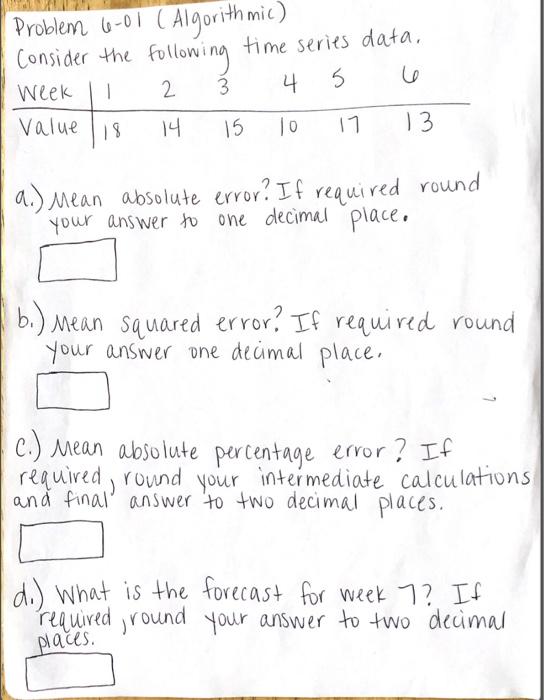 Problem 6-01 (Algorithmic)
Consider the following time series data.
Week 1 2 3 4 5 6
Value 18 14 15 10 17 13
a.) Mean absolute error? If required round
your answer to one decimal place.
b.) Mean squared error? If required round
your answer one decimal place.
c.) Mean absolute percentage error? If
required, round your intermediate calculations
and final answer to two decimal places.
d.) What is the forecast for week 7? If
required, round your answer to two decimal
places.